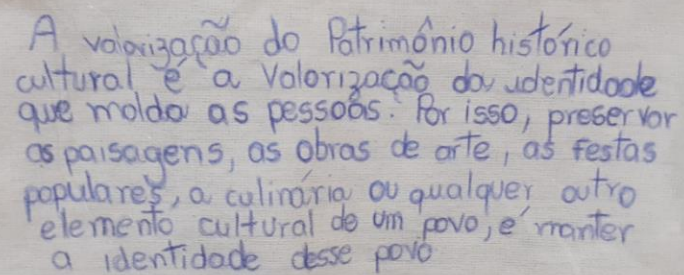 A valorização do Patrimônio histórico
cultural é a valorização da identidade
que molda as pessoas. Por isso, preservar
as paisagens, as obras de arte, as festas
populares, a culinária ou qualquer outro
elemento cultural de um povo, é manter
a identidade desse povo